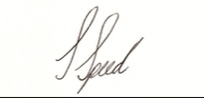 S Speed